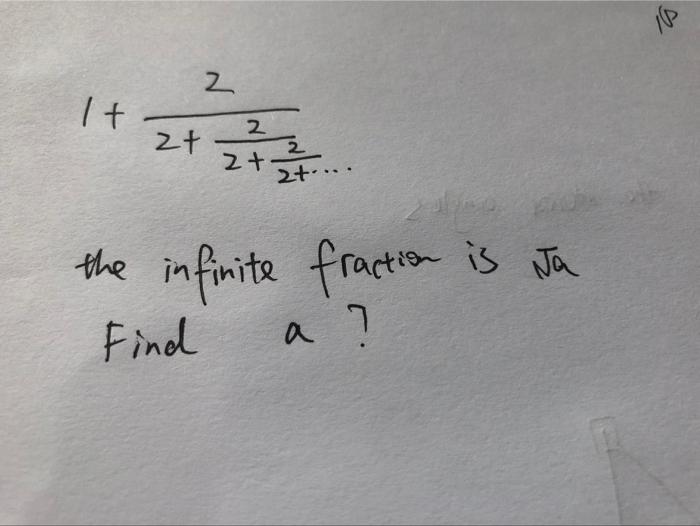 1 + 2 / (2 + 2 / (2 + 2 / (2 + ....
the infinite fraction is √a
Find a ?